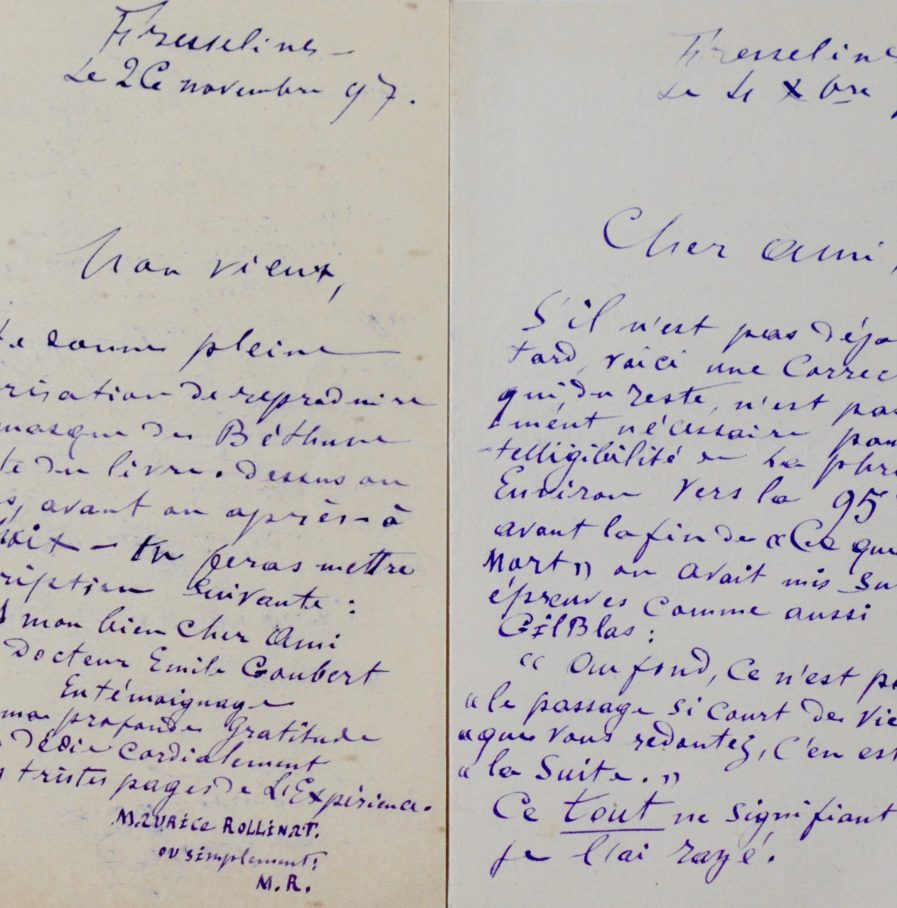 Fresselines -
Le 26 novembre 97.
Mon vieux,
te donne pleine
risation de reproduire
masque du Béthune
te du livre. Dessus ou
s, avant ou après - à
oit - tu feras mettre
ription suivante :
mon bien cher Ami
Docteur Emile Goubert
En témoignage
ma profonde Gratitude
dédie Cordialement
s tristes pages de L'Expérience.
MAURICE ROLLINAT.
ou simplement :
M.R.
Fresseline
Le 4 Xbre
Cher Ami,
S'il n'est pas déjà
tard, voici une Correc
qui, du reste, n'est pa
ment nécessaire pou
telligibilité de la phra
Environ vers la 95
avant la fin de "Ce que
Mort" on avait mis su
épreuves comme aussi
Gil Blas :
" Au fond, Ce n'est pa
" le passage si court de vie
" que vous redoutez, C'en est
" la Suite. "
Ce tout ne signifiant
je l'ai rayé.